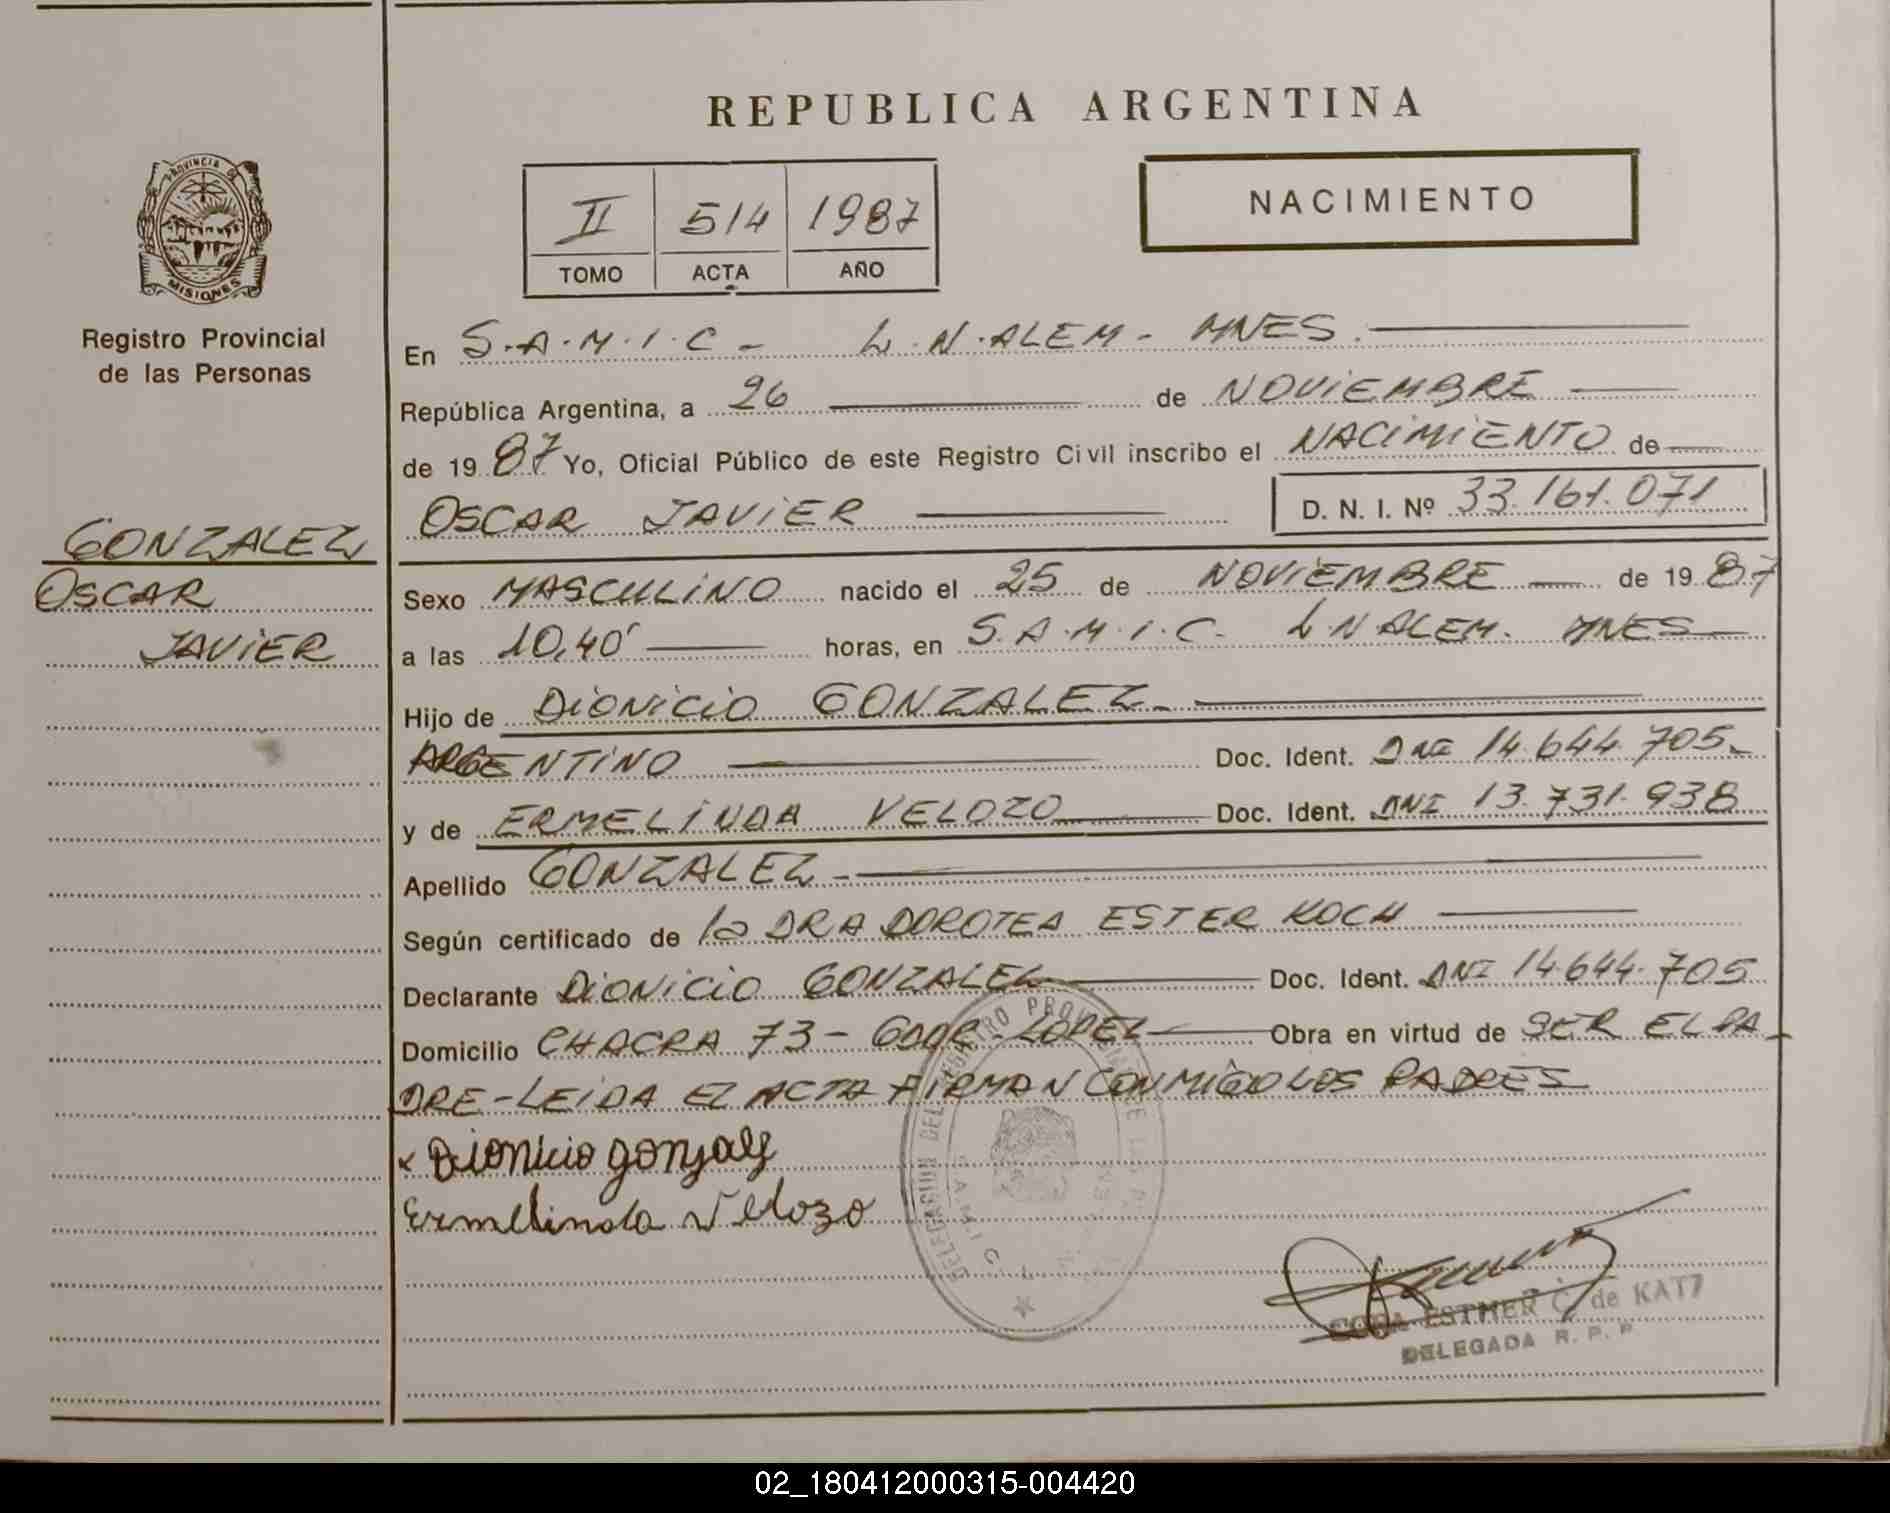 REPUBLICA ARGENTINA
PROVINCIA DE
MISIONES
Registro Provincial
de las Personas
II 514 1987
TOMO ACTA AÑO
NACIMIENTO
En S.A.M.I.C - L.N.ALEM - MNES.
República Argentina, a 26 de NOVIEMBRE
de 1987 Yo, Oficial Público de este Registro Civil inscribo el NACIMIENTO de
OSCAR JAVIER D. N. I. Nº 33.161.071
GONZALEZ
OSCAR
JAVIER
Sexo MASCULINO nacido el 25 de NOVIEMBRE de 1987
a las 10,40' horas, en S.A.M.I.C. L N ALEM. MNES
Hijo de DIONICIO GONZALEZ-
ARGENTINO Doc. Ident. DNI 14.644.705-
y de ERMELINDA VELOZO Doc. Ident. DNI 13.731.938
Apellido GONZALEZ-
Según certificado de la DRA DOROTEA ESTER KOCH
Declarante DIONICIO GONZALEZ Doc. Ident. DNI 14.644.705
Domicilio CHACRA 73 - GDOR. LOPEZ Obra en virtud de SER EL PA-
DRE - LEIDA EL ACTA FIRMAN CONMIGO LOS PADRES
x Dionicio gonzalz
Ermelinda Velozo
DELEGACION DEL REGISTRO PROVINCIAL DE LAS
S.A.M.I.C.
ESTHER C. de KATZ
DELEGADA R. P. P.
02_180412000315-004420